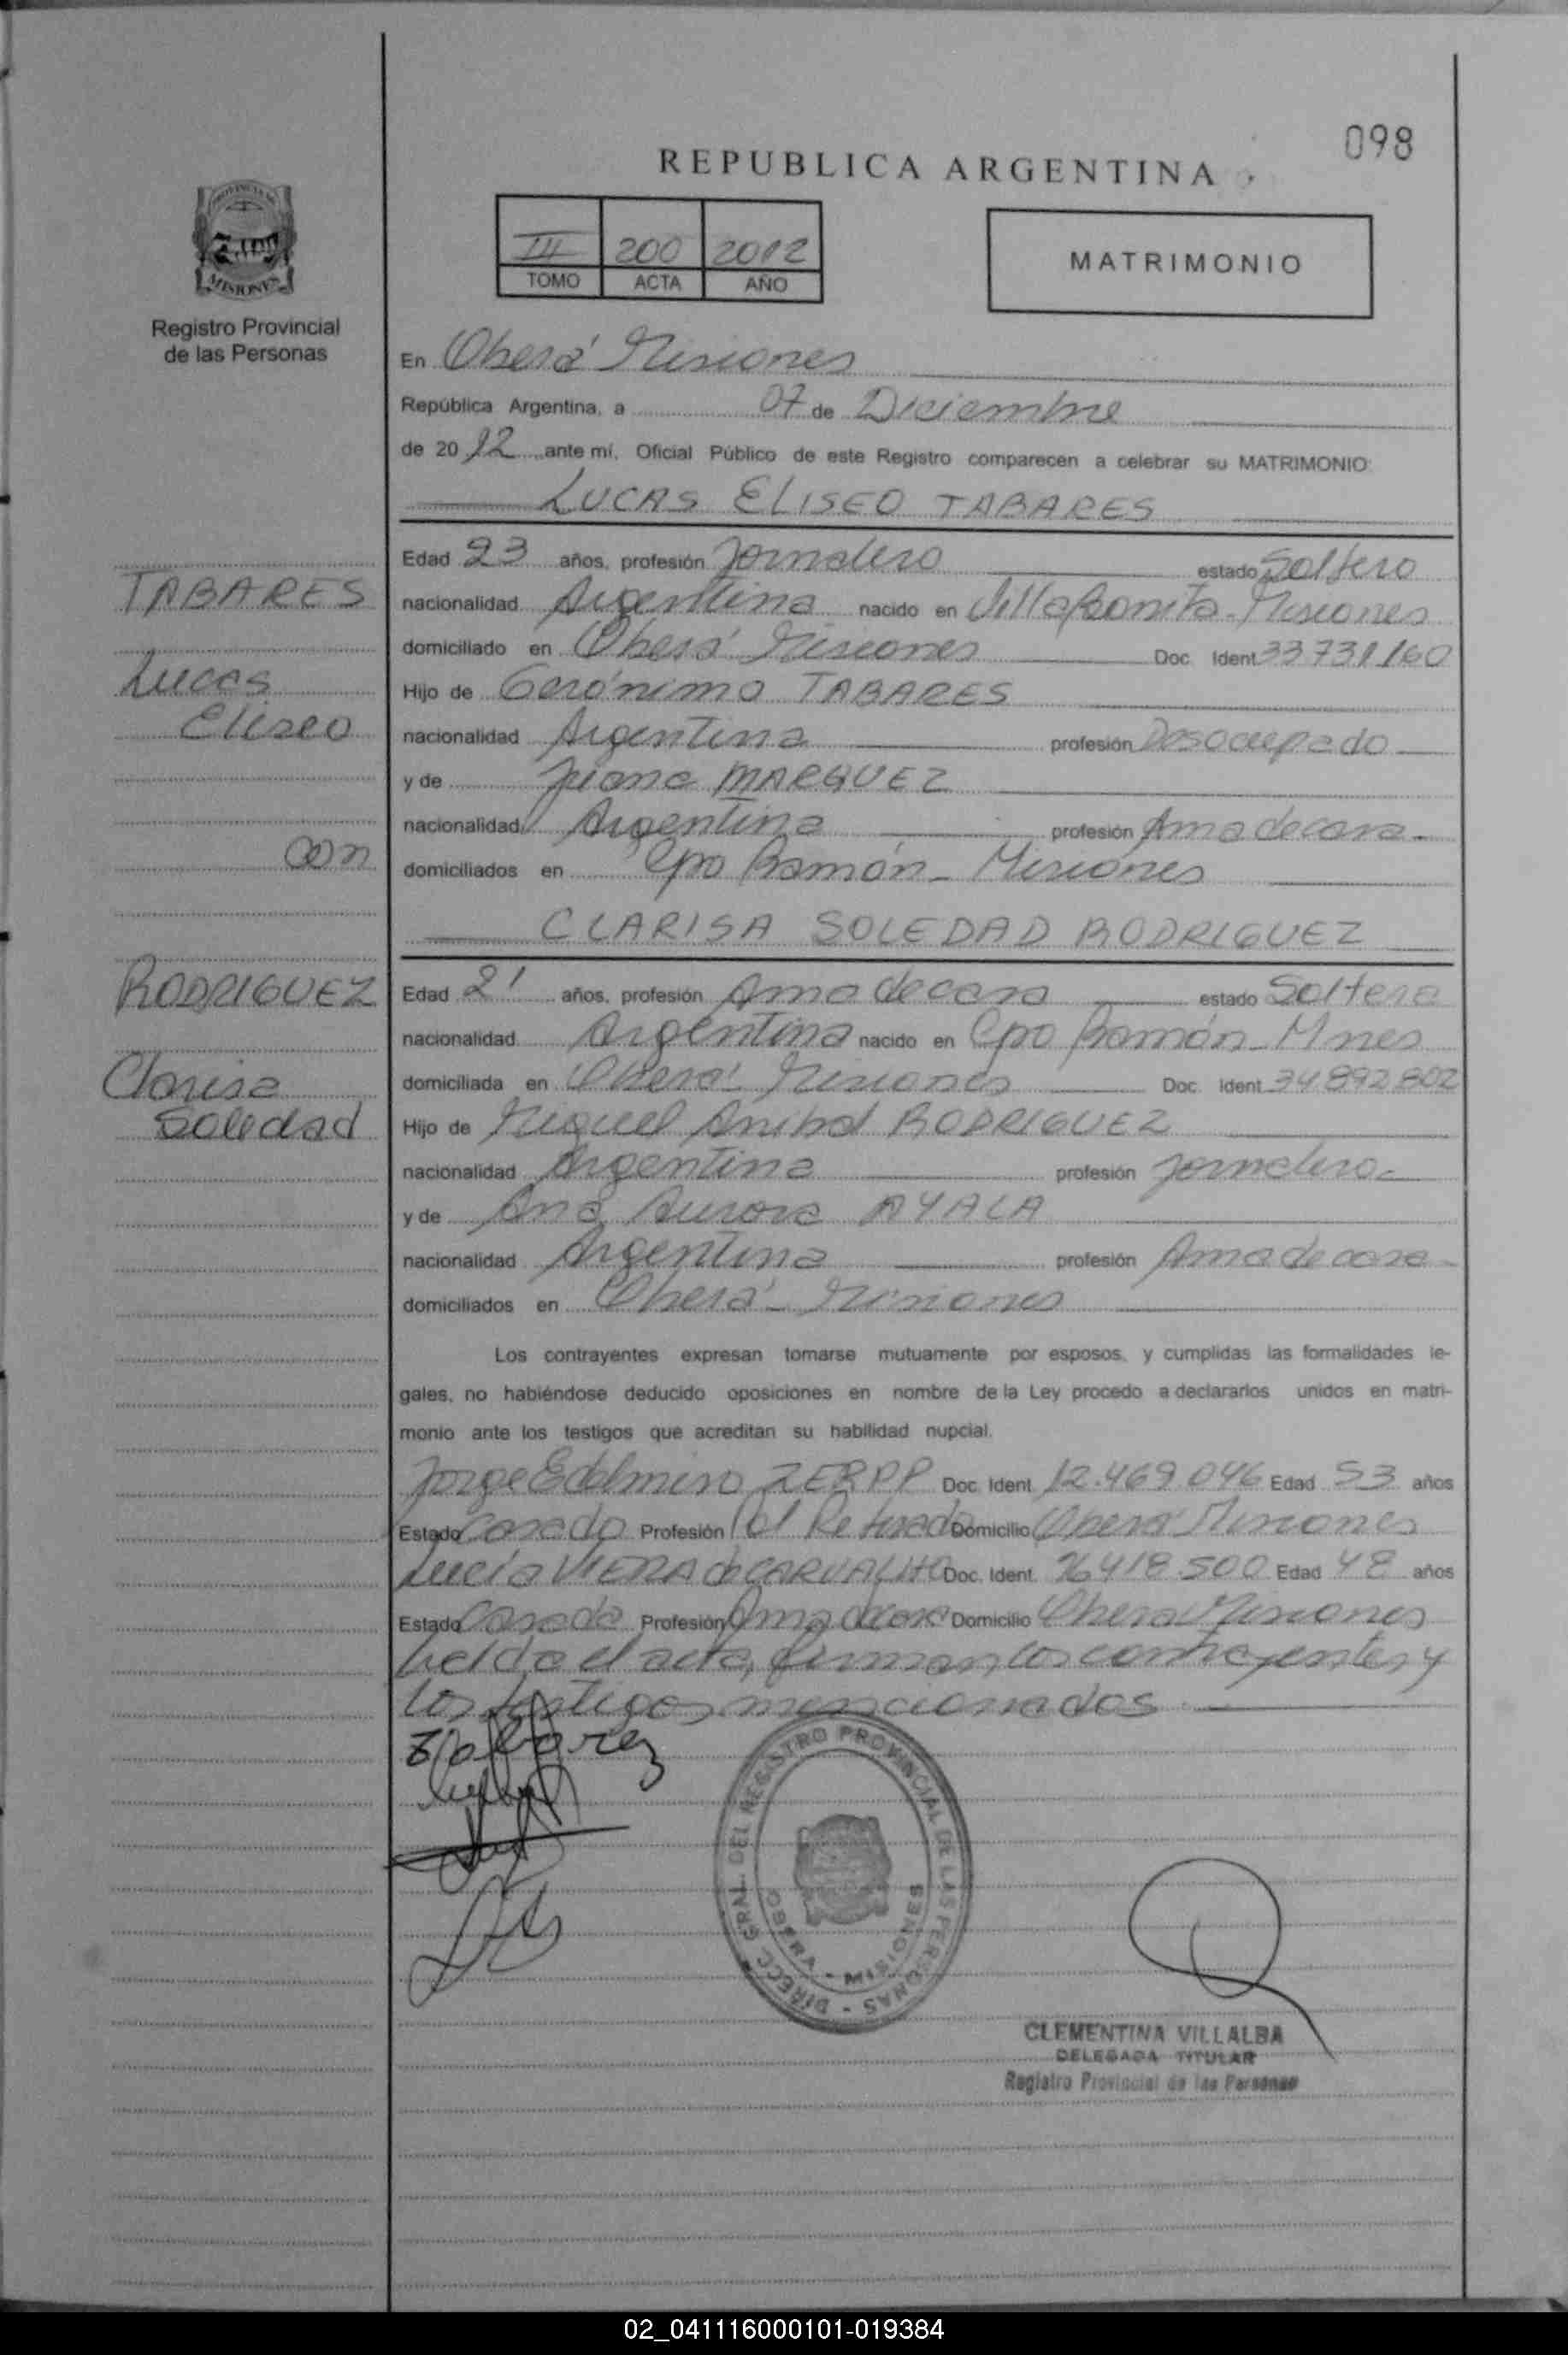 098
REPUBLICA ARGENTINA
III 200 2012
TOMO ACTA AÑO
MATRIMONIO
PROVINCIA DE
MISIONES
Registro Provincial
de las Personas
En Oberá Misiones
República Argentina, a 07 de Diciembre
de 2012 ante mí, Oficial Público de este Registro comparecen a celebrar su MATRIMONIO:
LUCAS ELISEO TABARES
TABARES
Lucas
Eliseo
con
RODRIGUEZ
Clarisa
Soledad
Edad 23 años, profesión Jornalero estado Soltero
nacionalidad Argentina nacido en Villa Bonita - Misiones
domiciliado en Oberá Misiones Doc. Ident 33731160
Hijo de Gerónimo TABARES
nacionalidad Argentina profesión Desocupado
y de Juana MARQUEZ
nacionalidad Argentina profesión Ama de casa
domiciliados en Cpo Ramón - Misiones
CLARISA SOLEDAD RODRIGUEZ
Edad 21 años, profesión Ama de casa estado Soltera
nacionalidad Argentina nacido en Cpo Ramón - Mnes
domiciliada en Oberá Misiones Doc. Ident 34892802
Hijo de Miguel Anibal RODRIGUEZ
nacionalidad Argentina profesión Jornalero
y de Ana Aurora AYALA
nacionalidad Argentina profesión Ama de casa
domiciliados en Oberá - Misiones
Los contrayentes expresan tomarse mutuamente por esposos, y cumplidas las formalidades le-
gales, no habiéndose deducido oposiciones en nombre de la Ley procedo a declararlos unidos en matri-
monio ante los testigos que acreditan su habilidad nupcial.
Jorge Edelmiro ZERPP Doc. Ident 12.469.046 Edad 53 años
Estado Casado Profesión Pol Retirado Domicilio Oberá Misiones
Lucía VIERA de CARVALHO Doc. Ident. 16418.500 Edad 48 años
Estado Casada Profesión Ama de casa Domicilio Oberá Misiones
Leída el acta, firman los contrayentes y
los testigos mencionados
DIRECC. GRAL. DEL REGISTRO PROVINCIAL DE LAS PERSONAS -
OBERA - MISIONES
CLEMENTINA VILLALBA
DELEGADA TITULAR
Registro Provincial de las Personas
02_041116000101-019384